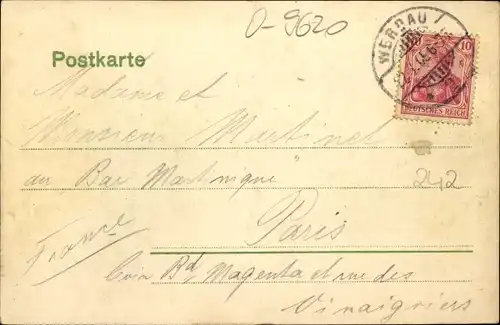 O-9620
Postkarte
WERDAU
10
DEUTSCHES REICH
Madame et
Monsieur Martinel
au Bar Martinique
242
Paris
France
Coin Bd Magenta et rue des
Vinaigriers